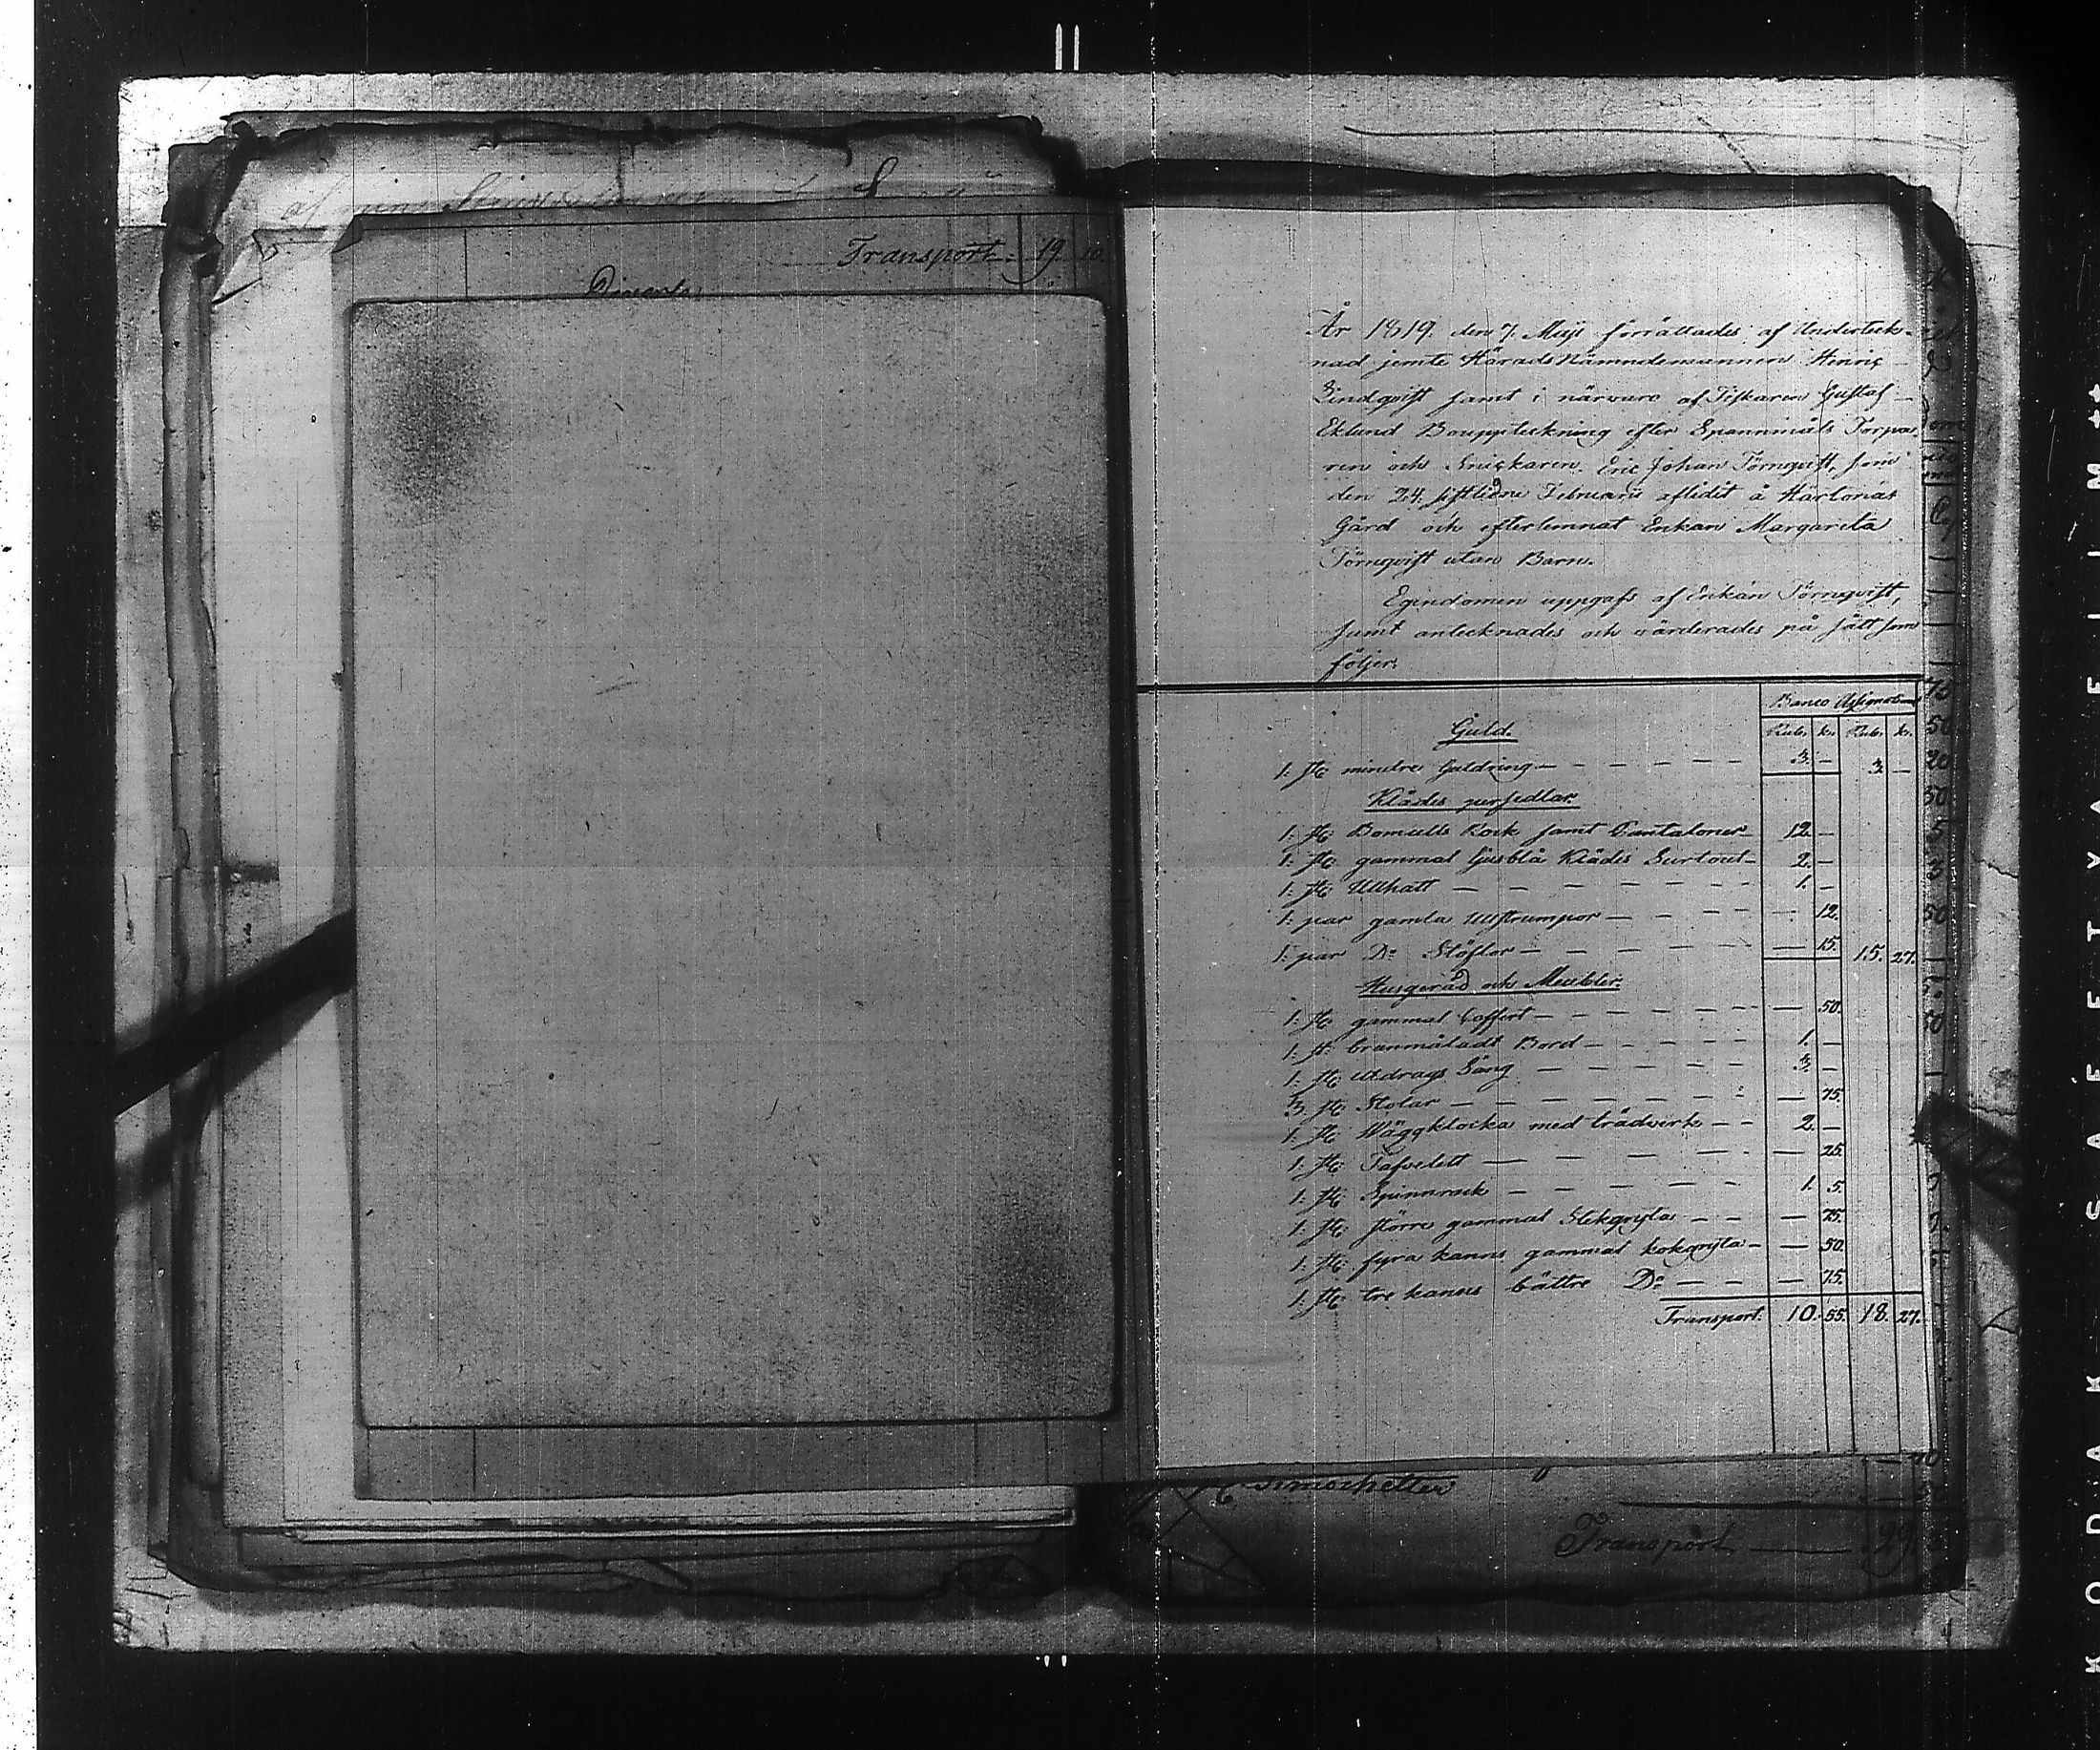 Transport 19 10
År 1819 den 7. Maji förrättades af Underteck-
nad jemte Härads Nämndemannen Henric
Lindqvist samt i närvaro af Fiskaren Gustaf
Eklund Bouppteckning efter Spannmåls Torpa-
ren och Snickaren Eric Johan Törnqvist, som
den 24. sistledne Februarii aflidit å
Gård och efterlemnat Enkan Margareta
Törnqvist utan Barn.
Egendomen uppgafs af Enkan Törnqvist,
samt antecknades och värderades på sätt som
följer:
Banco Assignationer
Guld. Rub. k. Rub. k.
1: st: mindre Guldring — 3. — 3. —
Klädes persedlar
1: st: Bomulls Rock samt Pantaloner 12. —
1: st: gammal ljusblå Klädes Surtout 2. —
1: st: Ullhatt — 1. —
1: par gamla Ullstrumpor — — 12.
1: par Do Stöflor — — 15. 15. 27.
Husgeråd och Meubler.
1: st: gammal Coffert — — 50.
1: st: brunmåladt Bord — 1. —
1: st: Utdrags Säng — 3. —
3. st: Stolar — — 75.
1: st: Wäggklocka med trädverk — 2. —
1: st: Tafvelett — — 25.
1: st: Spinnrock — 1. 5.
1: st: större gammal Stekgryta — — 75.
1: st: fyra kanns gammal kokgryta — — 50.
1: st: tre kanns bättre Do — — 75.
Transport: 10. 55. 18. 27.
Transport — 29.